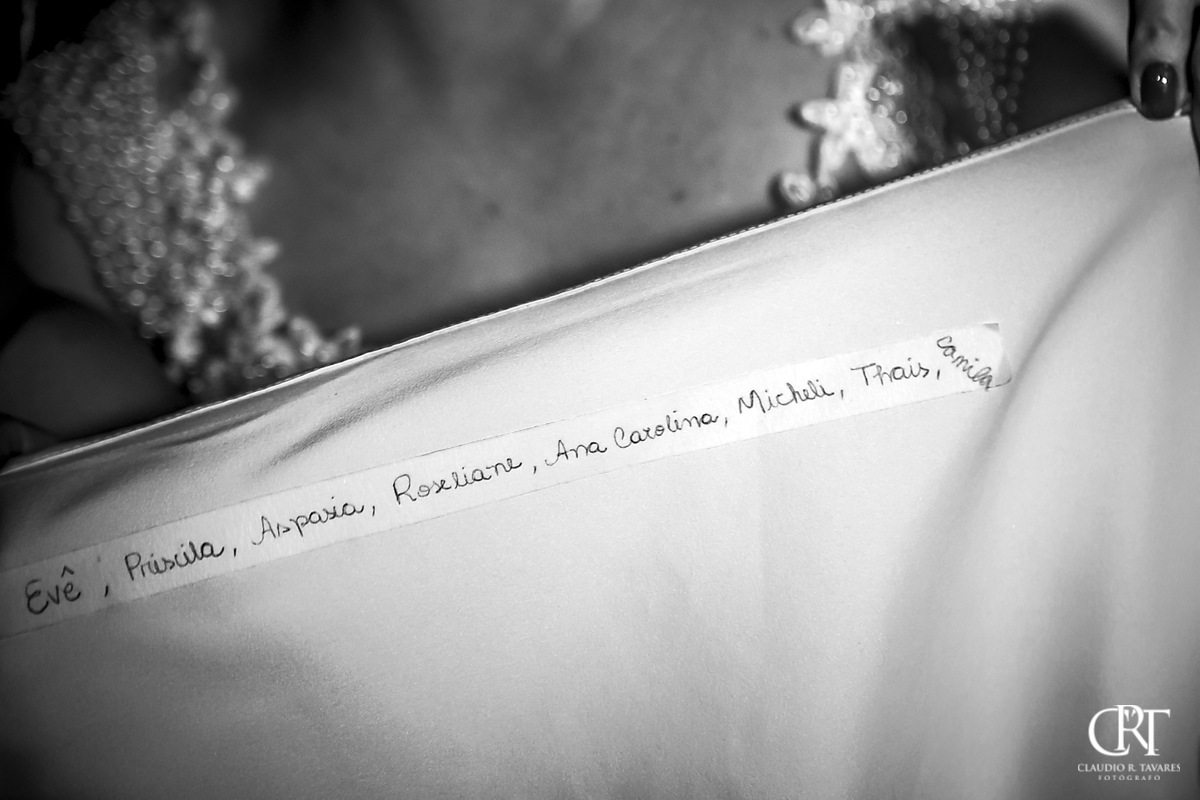 Evê, Priscila, Aspasia, Roseliane, Ana Carolina, Micheli, Thais, Camila
CRT
CLAUDIO R. TAVARES
FOTÓGRAFO